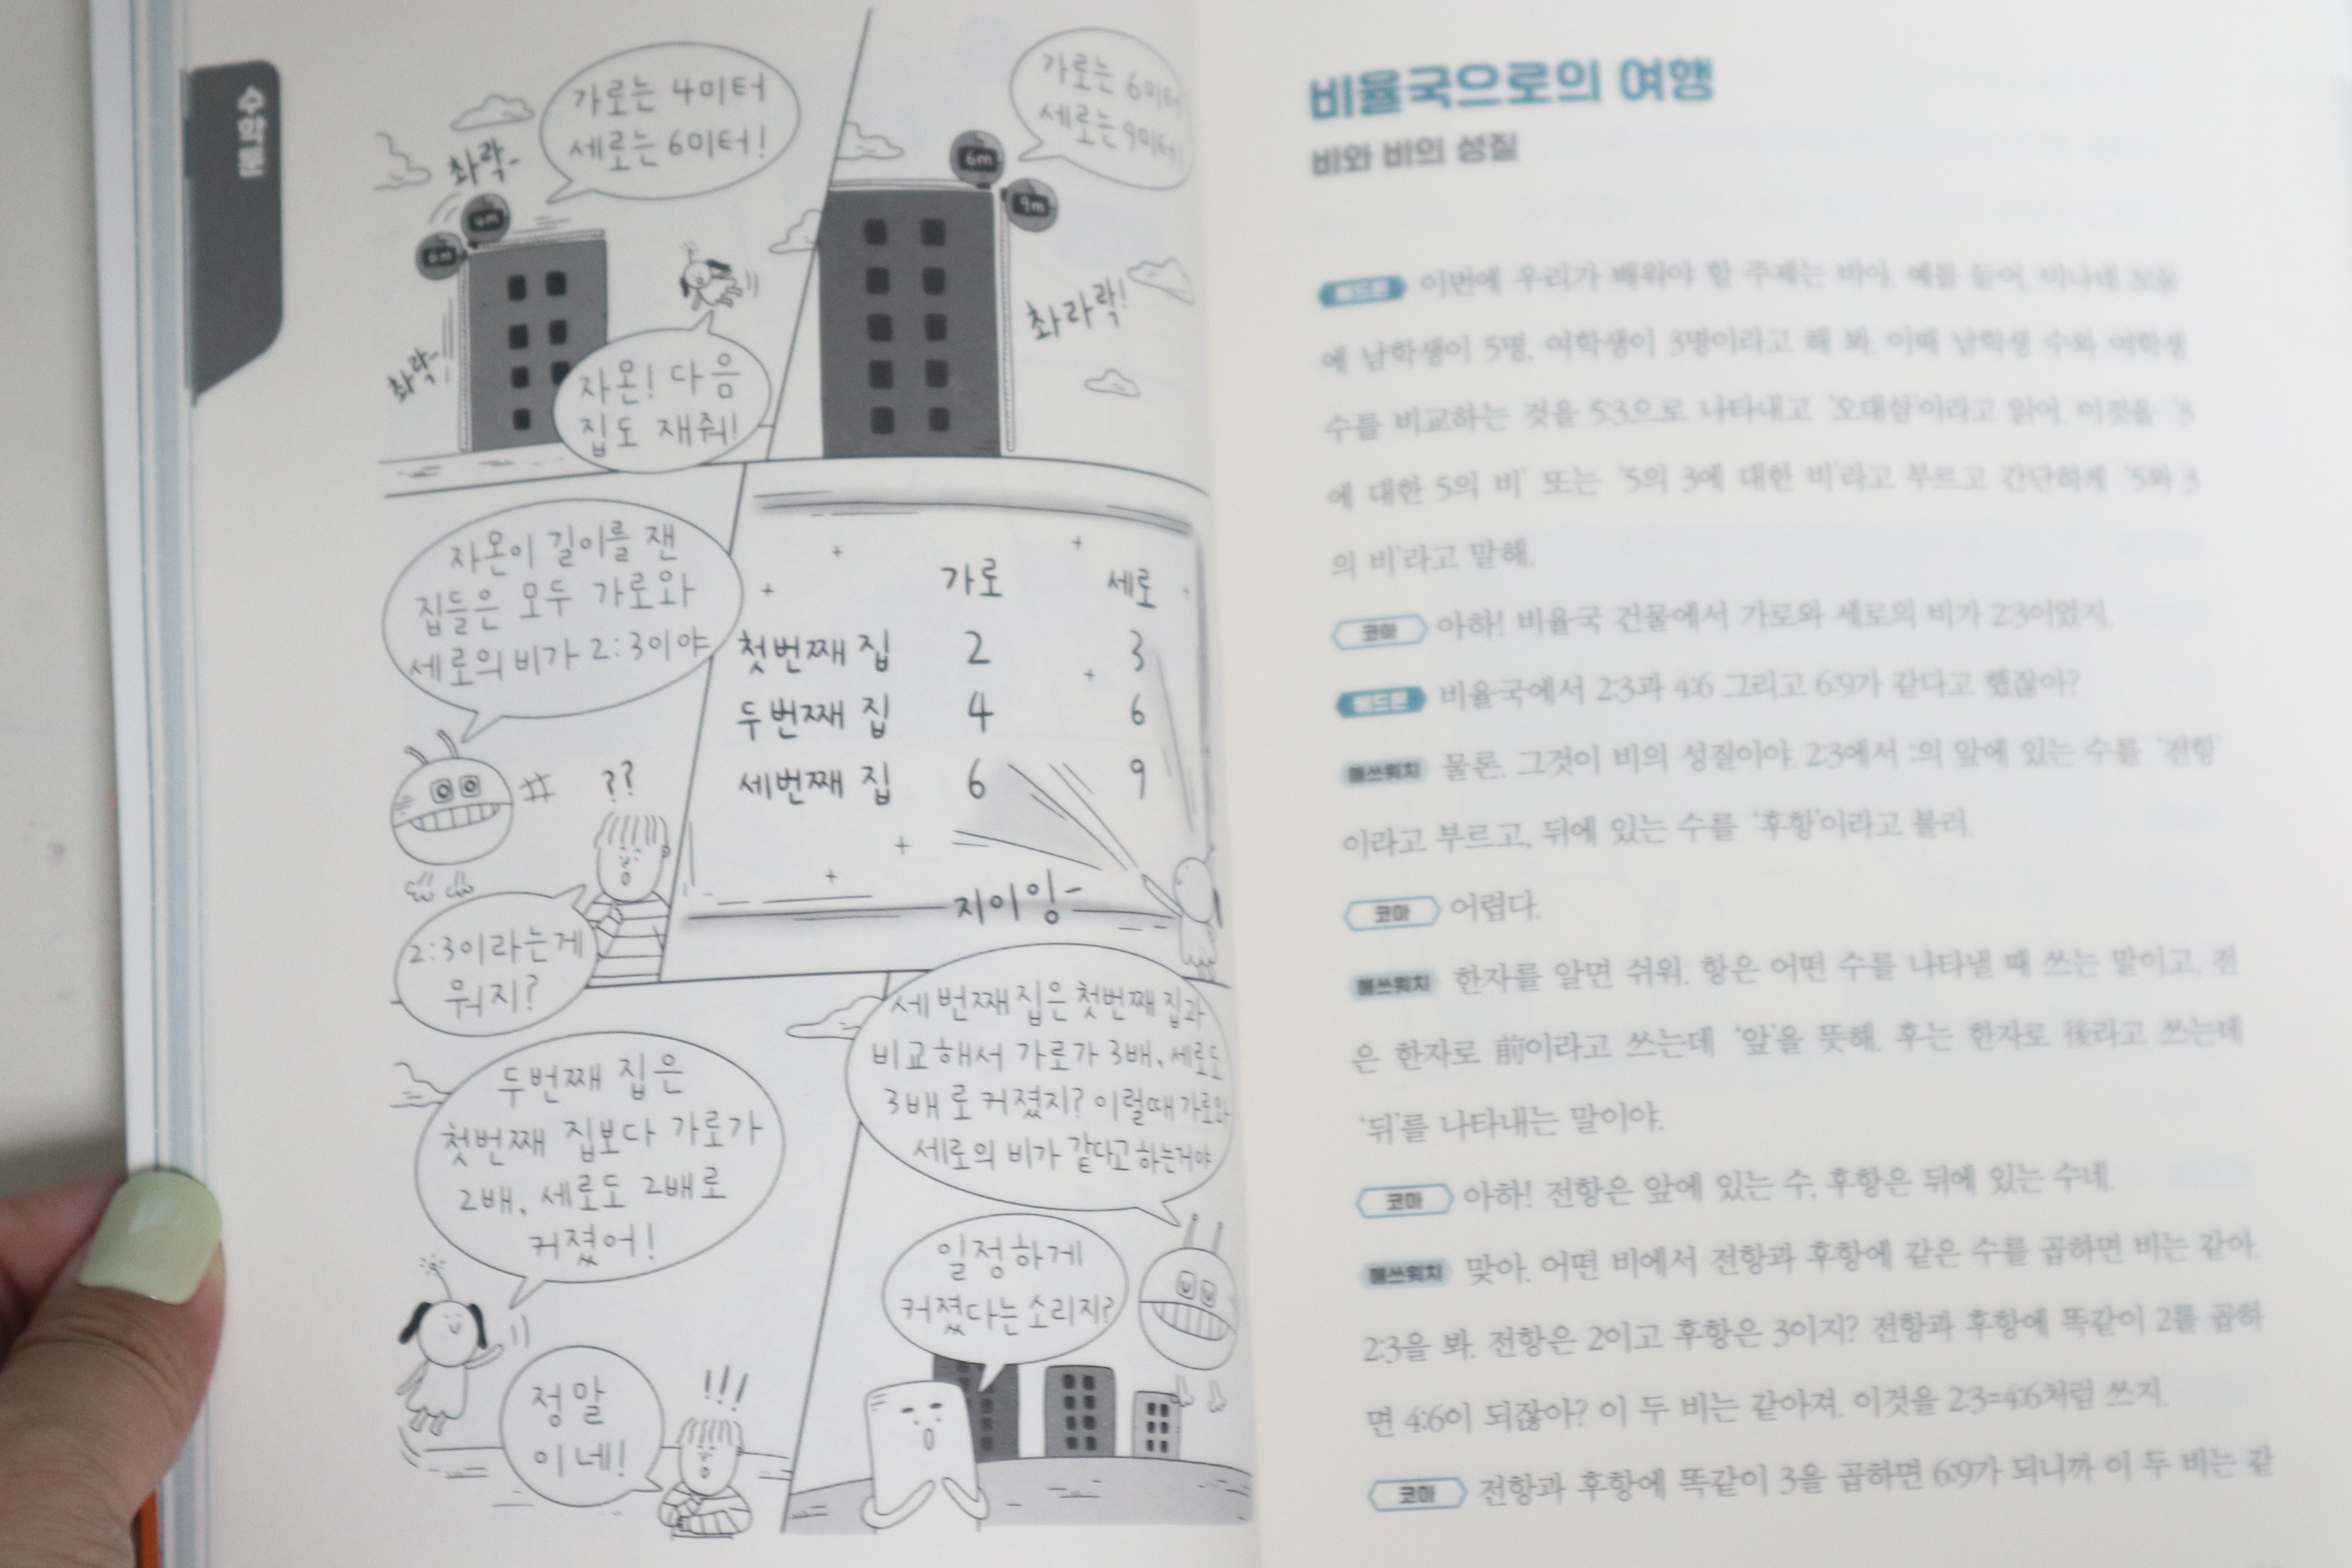 가로는 4미터
세로는 6미터!
촤락-
4m
6m
촤락-
자온! 다음
집도 재줘!
가로는 6미터
세로는 9미터!
6m
9m
촤라락!
자온이 길이를 잰
집들은 모두 가로와
세로의 비가 2:3이야
??
2:3이라는게
뭐지?
가로 세로
첫번째 집 2 3
두번째 집 4 6
세번째 집 6 9
지이잉-
두번째 집은
첫번째 집보다 가로가
2배, 세로도 2배로
커졌어!
정말
이네!
!!!
세번째 집은 첫번째 집과
비교해서 가로가 3배, 세로도
3배로 커졌지? 이럴때 가로와
세로의 비가 같다고 하는거야
일정하게
커졌다는 소리지?
비율국으로의 여행
비와 비의 성질
이번에 우리가 배워야 할 주제는 비야. 예를 들어, 미나네 모둠
에 남학생이 5명, 여학생이 3명이라고 해 봐. 이때 남학생 수와 여학생
수를 비교하는 것을 5:3으로 나타내고 '오대삼'이라고 읽어. 이것을 '3
에 대한 5의 비' 또는 '5의 3에 대한 비'라고 부르고 간단하게 '5와 3
의 비'라고 말해.
코마 아하! 비율국 건물에서 가로와 세로의 비가 2:3이었지.
베드몬 비율국에서 2:3과 4:6 그리고 6:9가 같다고 했잖아?
매쓰워치 물론. 그것이 비의 성질이야. 2:3에서 :의 앞에 있는 수를 '전항'
이라고 부르고, 뒤에 있는 수를 '후항'이라고 불러.
코마 어렵다.
매쓰워치 한자를 알면 쉬워. 항은 어떤 수를 나타낼 때 쓰는 말이고, 전
은 한자로 前이라고 쓰는데 '앞'을 뜻해. 후는 한자로 後라고 쓰는데
'뒤'를 나타내는 말이야.
코마 아하! 전항은 앞에 있는 수, 후항은 뒤에 있는 수네.
매쓰워치 맞아. 어떤 비에서 전항과 후항에 같은 수를 곱하면 비는 같아.
2:3을 봐. 전항은 2이고 후항은 3이지? 전항과 후항에 똑같이 2를 곱하
면 4:6이 되잖아? 이 두 비는 같아져. 이것을 2:3=4:6처럼 쓰지.
코마 전항과 후항에 똑같이 3을 곱하면 6:9가 되니까 이 두 비는 같